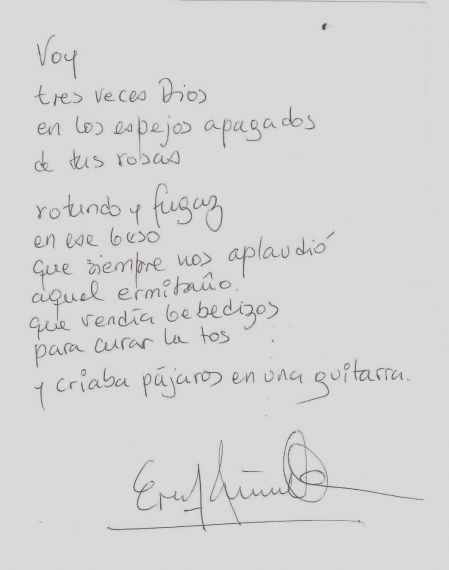 Voy
tres veces Dios
en los espejos apagados
de tus robas
rotundo y fugaz
en ese beso
que siempre nos aplaudió
aquel ermitaño.
que vendía bebedizos
para curar la tos
y criaba pájaros en una guitarra.